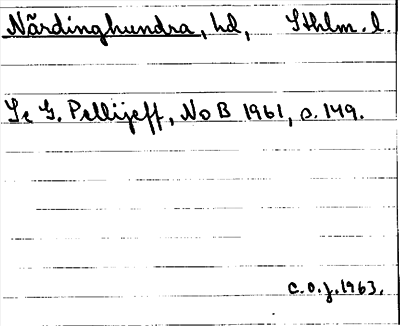 Närdinghundra, hd, Sthlm. l.
Se G. Pellijeff, NoB 1961, s. 149.
C.O.J. 1963.